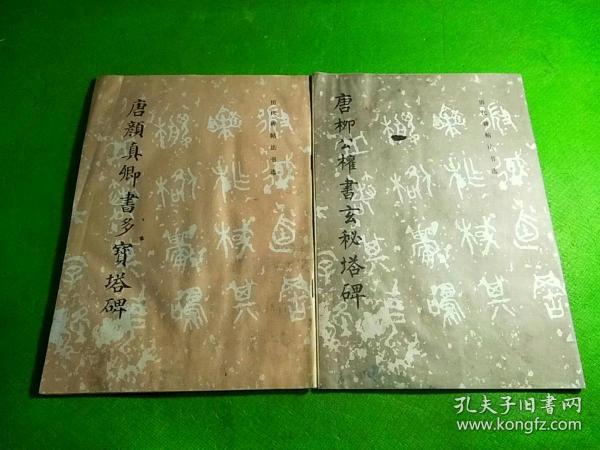 唐顏真卿書多寶塔碑
历代碑帖法书选
唐柳公權書玄秘塔碑
历代碑帖法书选
孔夫子旧書网
www.kongfz.com